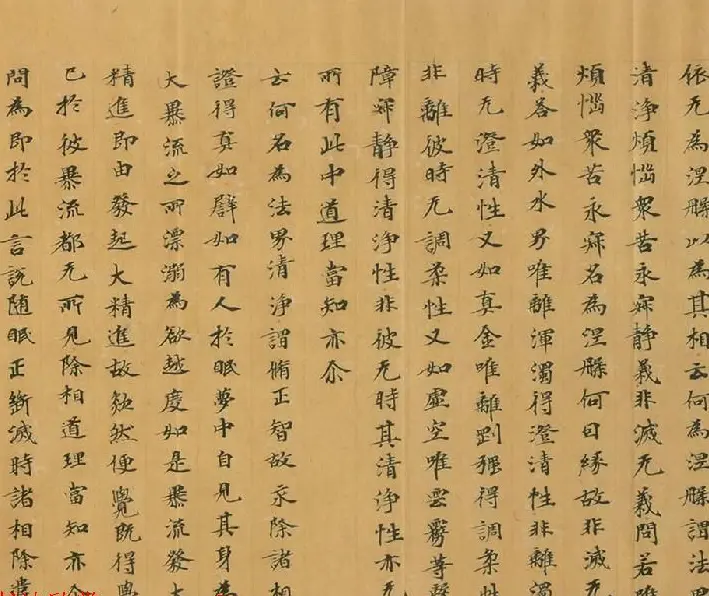 依无為涅槃以為其相云何為涅槃謂法界
清淨煩惱衆苦永寂靜義非滅无義問若唯
煩惱衆苦永寂名為涅槃何因緣故非滅无
義荅如外水界唯離渾濁得澄清性非離濁
時无澄清性又如真金唯離剛強得調柔性
非離彼時无調柔性又如虛空唯雲霧等翳
障寂靜得清淨性非彼无時其清淨性亦无
所有此中道理當知亦尒
云何名為法界清淨謂脩正智故永除諸相
證得真如譬如有人於眠夢中自見其身為
大暴流之所漂溺為欲越度如是暴流發大
精進即由發起大精進故欻然便覺既得覺
已於彼暴流都无所見除相道理當知亦尒
問為即於此言說隨眠正斷滅時諸相除遣